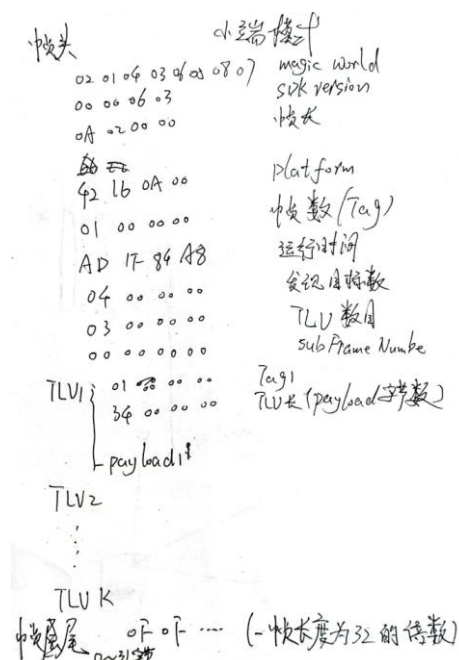 帧头 小端模式
02 01 04 03 06 05 08 07 magic world
00 00 06 03 SDK version
0A 02 00 00 帧长
42 16 0A 00 platform
01 00 00 00 帧数(Tag)
AD 1F 84 A8 运行时间
04 00 00 00 发现目标数
03 00 00 00 TLV 数目
00 00 00 00 subFrame Numbe
TLV1: 01 00 00 00 Tag1
34 00 00 00 TLV长(payload字节数)
payload1
TLV2
TLV K
帧尾 0F 0F ···· (一帧长度为32的倍数)
0~31字节